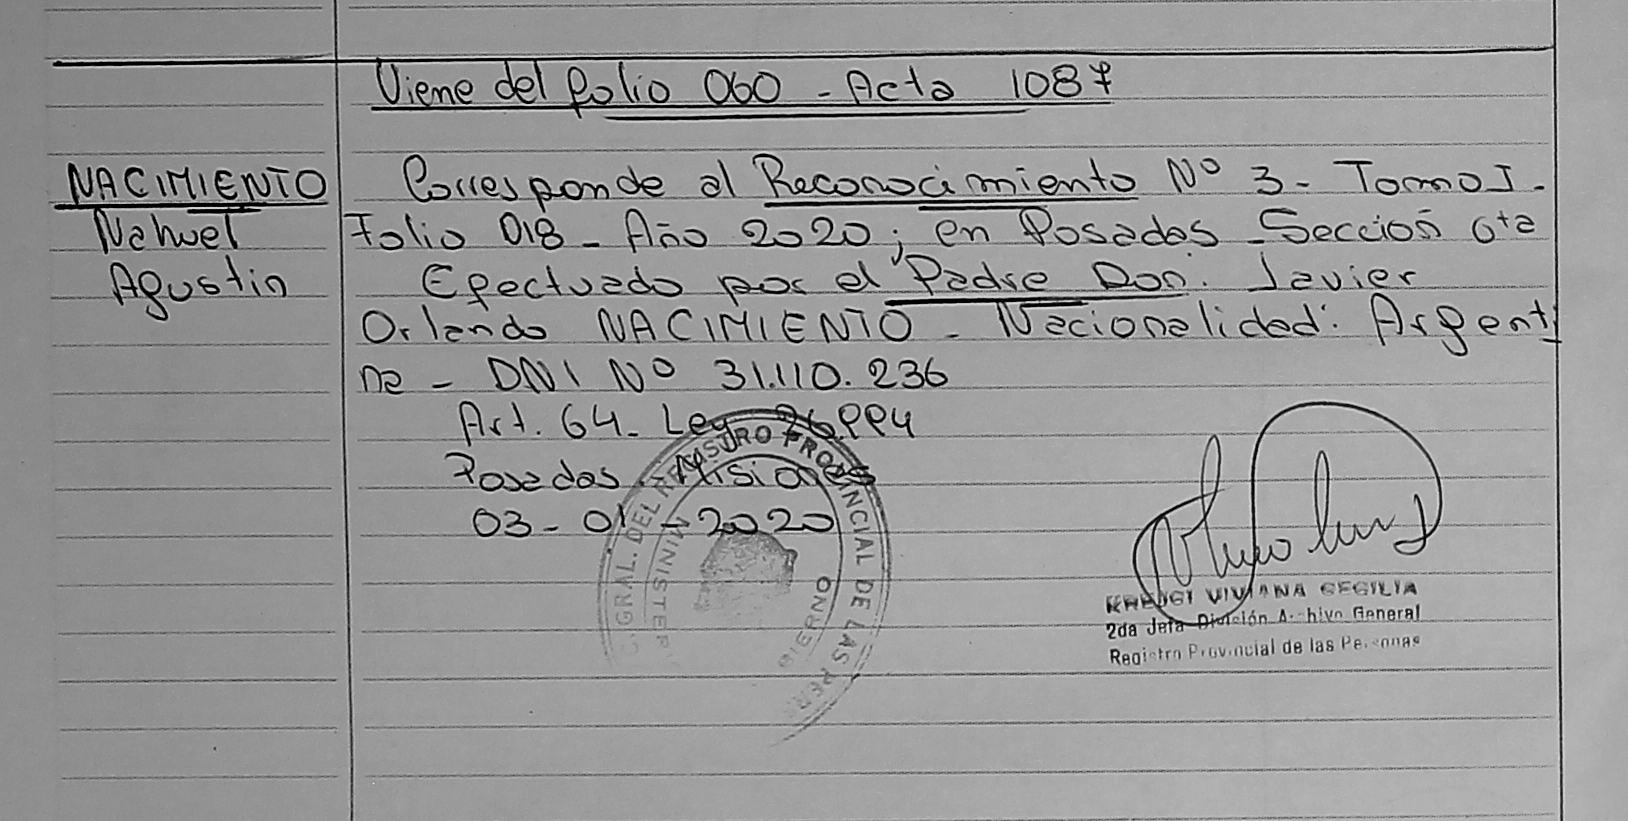 Viene del folio 060 - Acta 1087
NACIMIENTO
Nahuel
Agustin
Corresponde al Reconocimiento Nº 3 - Tomo I -
Folio 018 - Año 2020; en Posadas - Sección 6ta
Efectuado por el Padre Don: Javier
Orlando NACIMIENTO - Nacionalidad: Argenti
na - DNI Nº 31.110.236
Art. 64 - Ley 26.994
Posadas - Misiones
03 - 01 - 2020
GRAL. DEL REGISTRO PROVINCIAL DE LAS PER
MINISTER
BIERNO
VIVIANA CECILIA
2da Jefa División Archivo General
Registro Provincial de las Personas